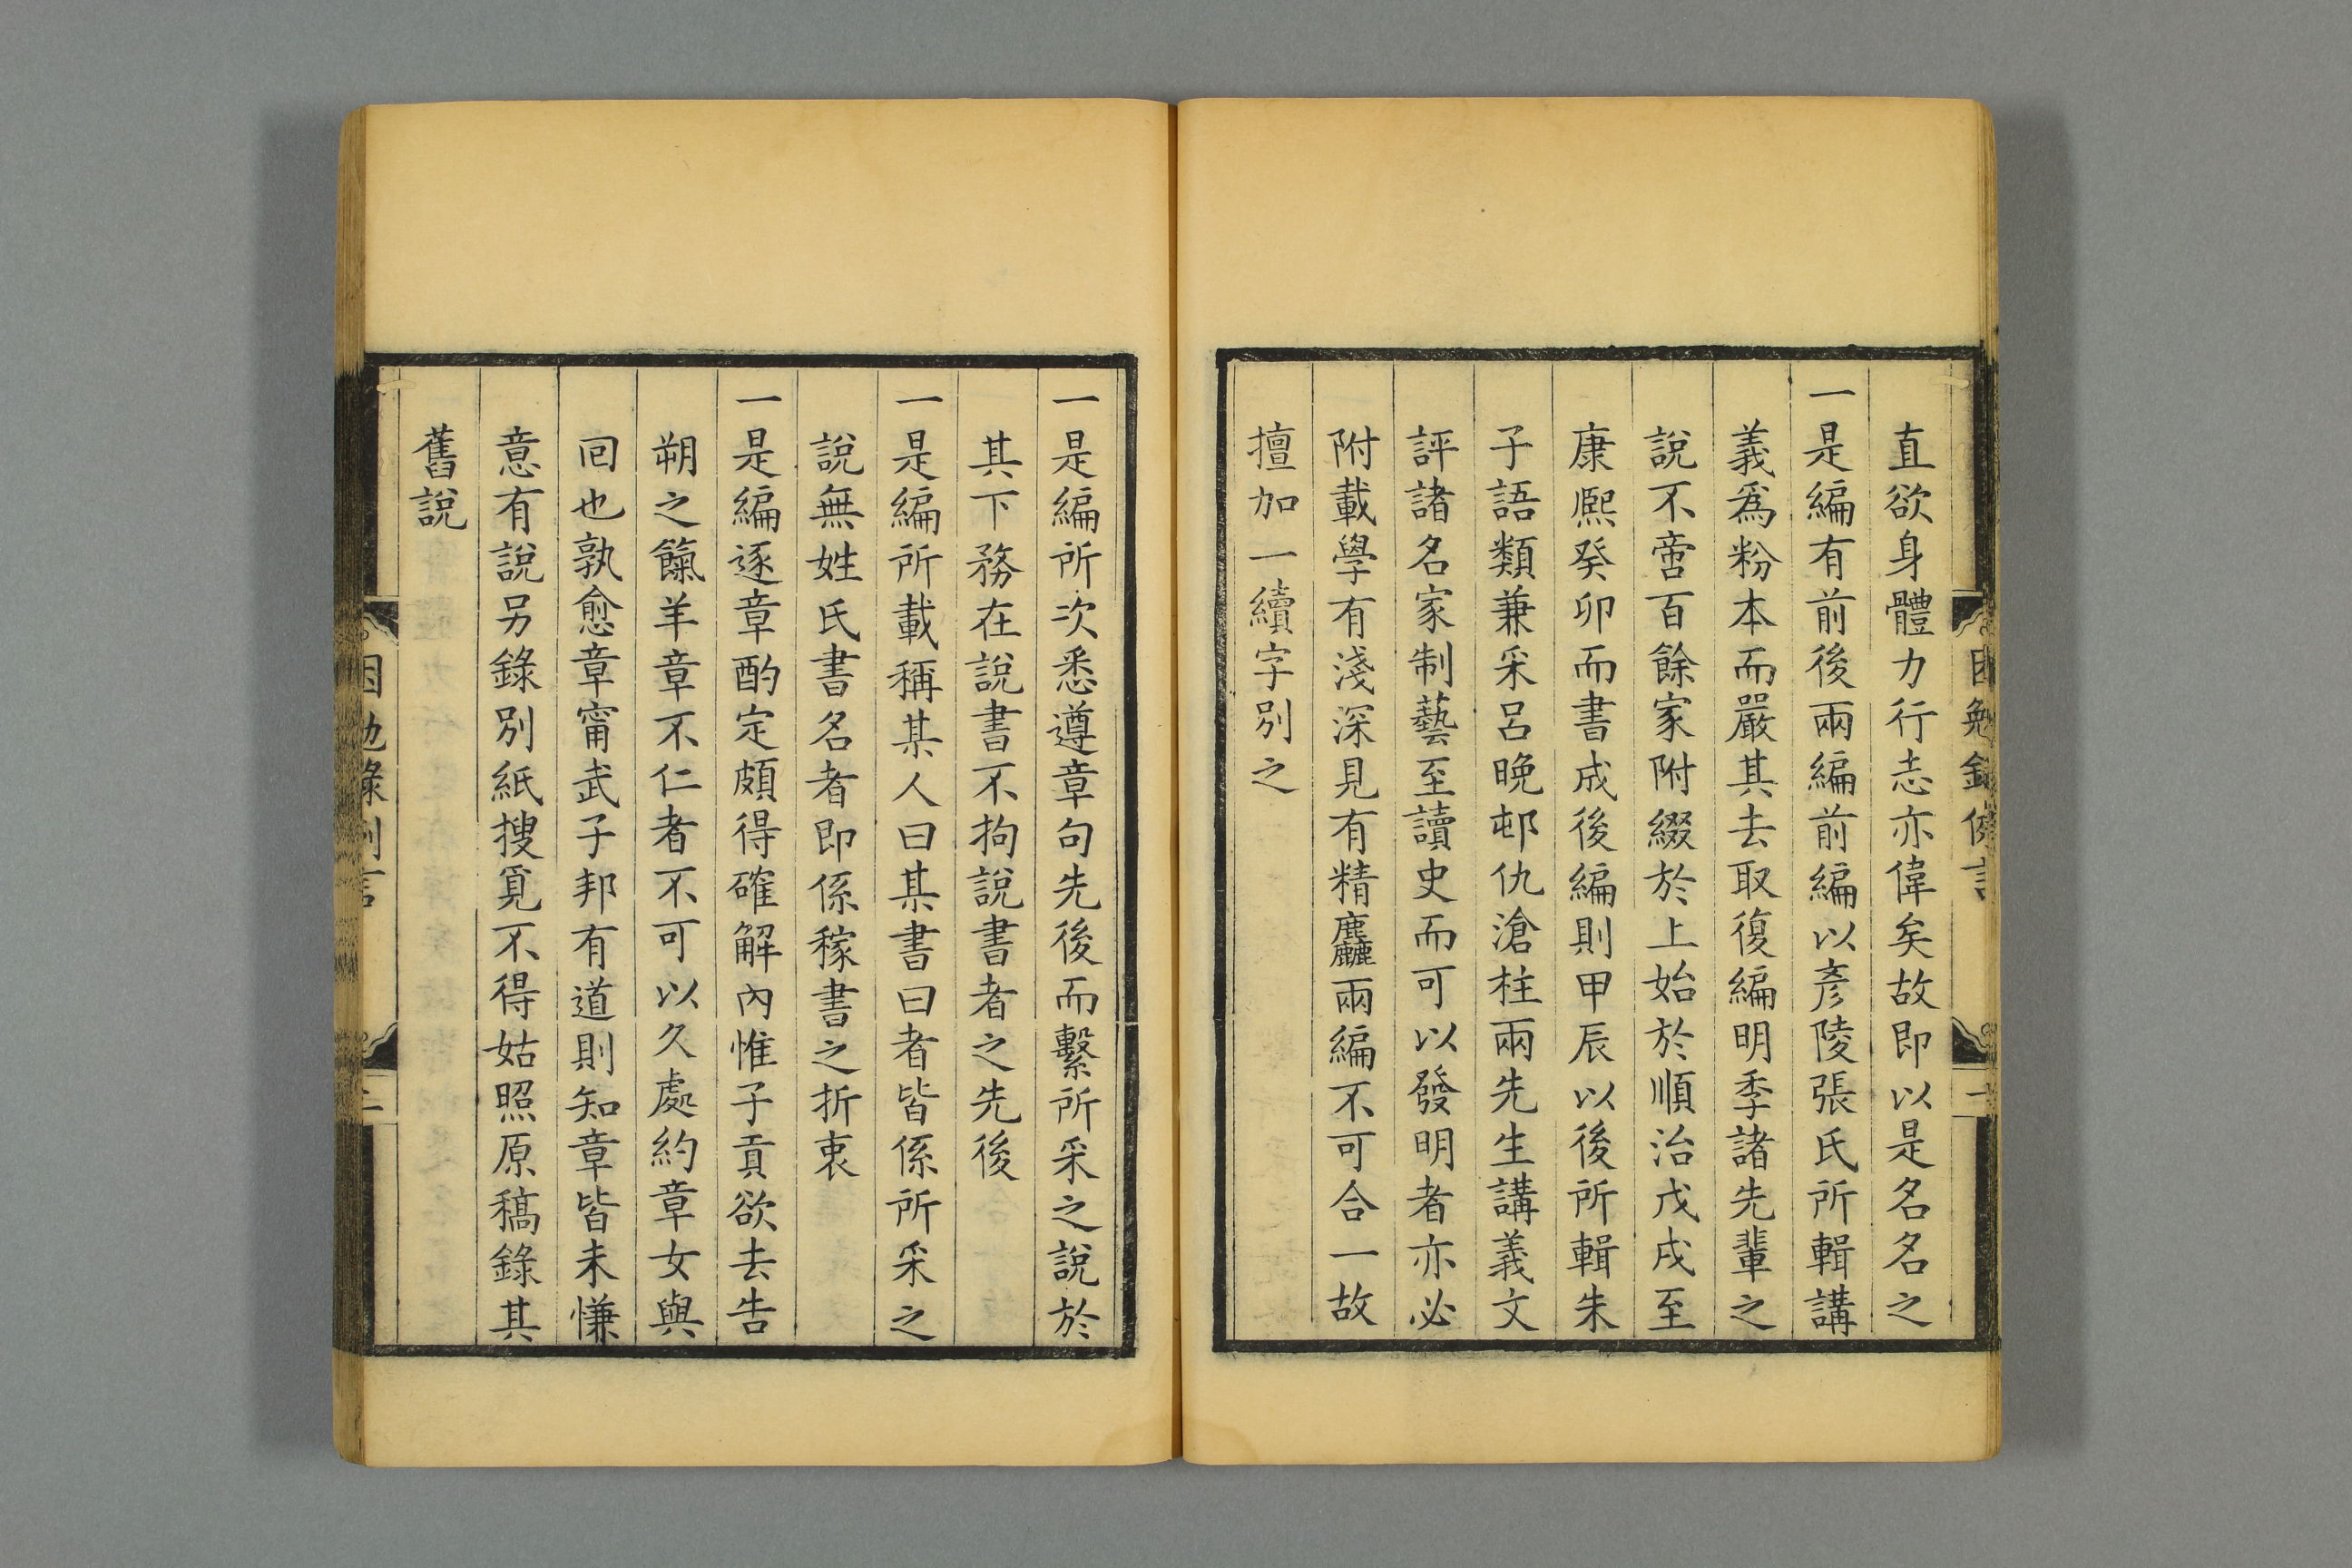 困勉錄例言
一
直欲身體力行志亦偉矣故即以是名名之
一是編有前後兩編前編以彥陵張氏所輯講
義爲粉本而嚴其去取復編明季諸先輩之
說不啻百餘家附綴於上始於順治戊戌至
康熙癸卯而書成後編則甲辰以後所輯朱
子語類兼采呂晚邨仇滄柱兩先生講義文
評諸名家制藝至讀史而可以發明者亦必
附載學有淺深見有精麤兩編不可合一故
擅加一續字別之
一是編所次悉遵章句先後而繫所采之說於
其下務在說書不拘說書者之先後
一是編所載稱某人曰某書曰者皆係所采之
說無姓氏書名者即係稼書之折衷
一是編逐章酌定頗得確解內惟子貢欲去告
朔之餼羊章不仁者不可以久處約章女與
回也孰愈章甯武子邦有道則知章皆未慊
意有說另錄別紙搜覓不得姑照原稿錄其
舊說
困勉錄例言
二